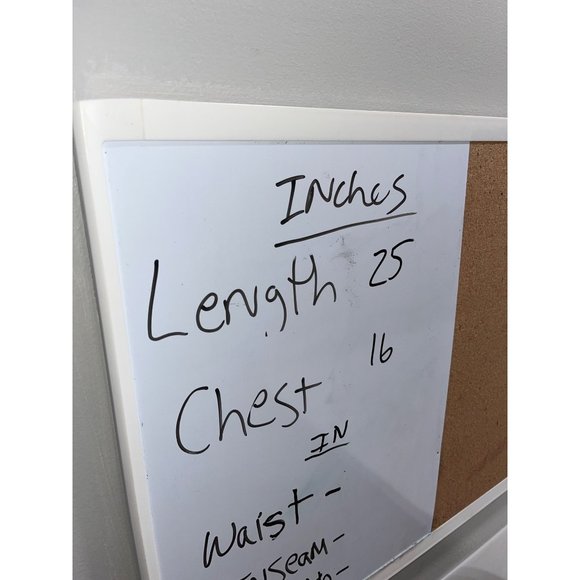 Inches
Length 25
Chest 16
IN
Waist -
Inseam -